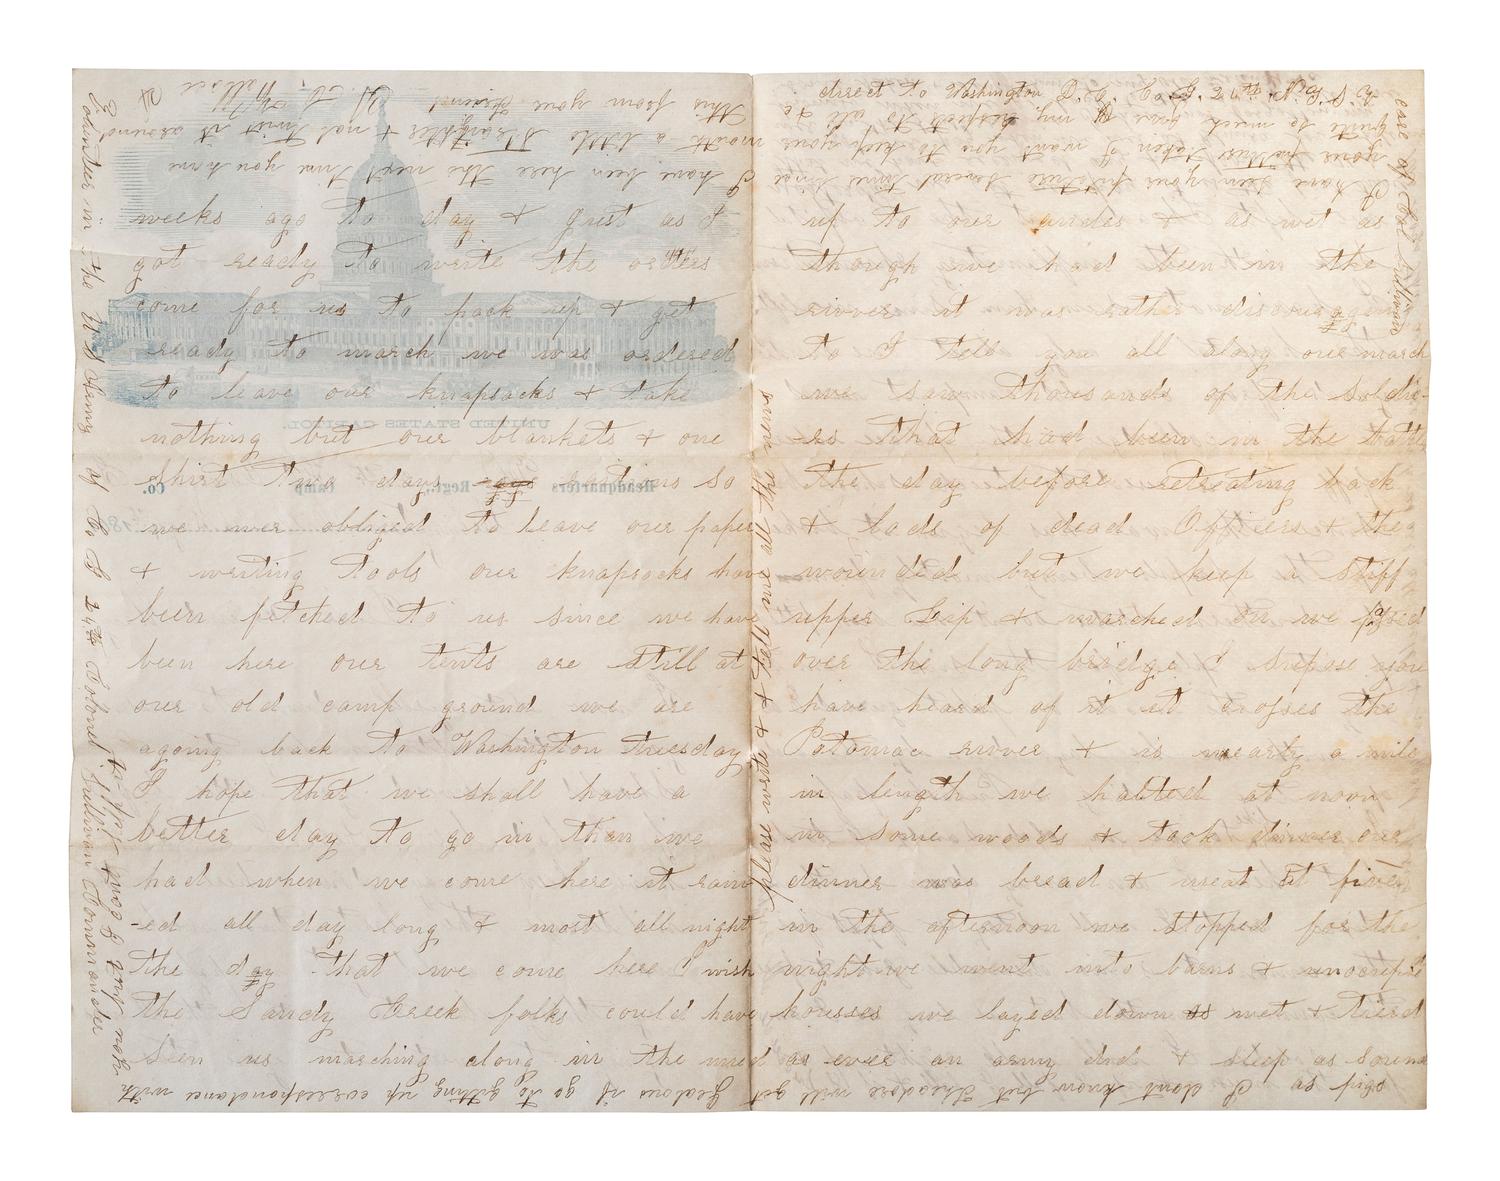 weeks ago to day & just as I
got ready to write the orders
come for us to pack up & get
ready to march we was ordered
to leave our knapsacks & take
nothing but our blankets & one
shirt two days rations so
we wer obliged to leave our paper
& writing tools our knapsacks have
been fetched to us since we have
been here our tents are still at
our old camp ground we are
agoing back to Washington tuesday
I hope that we shall have a
better day to go in than we
had when we come here it rain
-ed all day long & most all night
the day that we come here I wish
the Sandy Creek folks could have
seen us marching along in the mud
up to our ancles & as wet as
though we had been in the
rivver it was rather discouraging
to I tell you all along our march
we saw thousands of the soldi-
ers that had been in the battle
the day before retreating back
& lods of dead Officers & the
wounded but we keep a stiff
upper Lip & marched on we passed
over the long bridge I supose you
have heard of it it crosses the
Potomac rivver & is nearly a mile
in length we halted at noon
in some woods & took dinner our
dinner was bread & meat at five
in the afternoon we stopped for the
night we went into barns & unocupied
housses we layed down as wet & tierd
as ever an army did & sleep as sound
as pigs I dont know but Theodore will get
Jealous if I go to gitting up correspondance with
UNITED STATES CAPITOL
Headquarters Regt., Camp Co.
18
direct to Washington D. C. Co. G. 24th N.Y.S.V.
care of Col Sullivan
I have seen your picture several times since
I have been here the next time you have
your picture taken I want you to keep your
mouth a little straighter & not twist it around
quite so much give my respects to all &c
this from your friend
H. E. Wallace